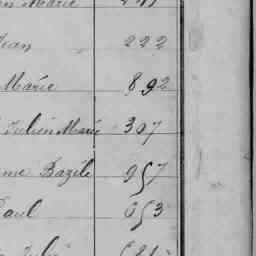 Marie
Jean 222
Marie 892
Julien Marie 307
me Bazile 957
Paul 653